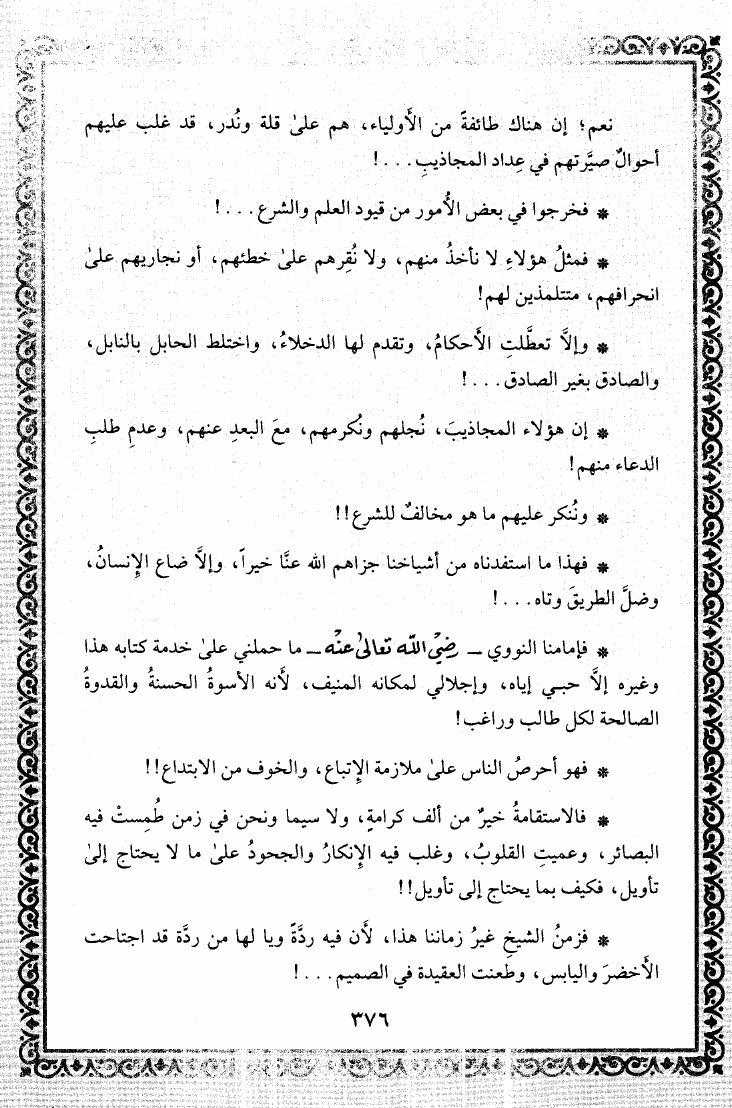 نعم؛ إن هناك طائفةً من الأَولياء، هم علىٰ قلة ونُدر، قد غلب عليهم
أحوالٌ صيَّرتهم في عِداد المجاذيبِ. . . !
* فخرجوا في بعض الأُمور من قيود العلم والشرع. . . !
* فمثلُ هؤلاءِ لا نأخذُ منهم، ولا نُقِرهم علىٰ خطئهم، أو نجاريهم علىٰ
انحرافهم، متتلمذين لهم!
* وإلاَّ تعطَّلتِ الأَحكامُ، وتقدم لها الدخلاءُ، واختلط الحابل بالنابل،
والصادق بغير الصادق. . . !
* إن هؤلاء المجاذيبَ، نُجلهم ونُكرمهم، معَ البعدِ عنهم، وعدمِ طلبِ
الدعاء منهم!
* ونُنكر عليهم ما هو مخالفٌ للشرع!!
* فهذا ما استفدناه من أشياخنا جزاهم الله عنَّا خيراً، وإلاَّ ضاع الإِنسانُ،
وضلَّ الطريقَ وتاه. . . !
* فإمامنا النووي ـ رضي الله تعالىٰ عنه ـ ما حملني علىٰ خدمة كتابه هذا
وغيره إلاَّ حبي إياه، وإجلالي لمكانه المنيف، لأَنه الأسوةُ الحسنةُ والقدوةُ
الصالحة لكل طالب وراغب!
* فهو أحرصُ الناس علىٰ ملازمة الإِتباع، والخوف من الابتداع!!
* فالاستقامةُ خيرٌ من ألف كرامةٍ، ولا سيما ونحن في زمن طُمِستْ فيه
البصائر، وعميتِ القلوبُ، وغلب فيه الإِنكارُ والجحودُ علىٰ ما لا يحتاج إلىٰ
تأويل، فكيف بما يحتاج إلى تأويل!!
* فزمنُ الشيخِ غيرُ زماننا هذا، لأَن فيه ردَّةً ويا لها من ردَّة قد اجتاحت
الأَخضرَ واليابس، وطعنت العقيدة في الصميم. . . !
٣٧٦